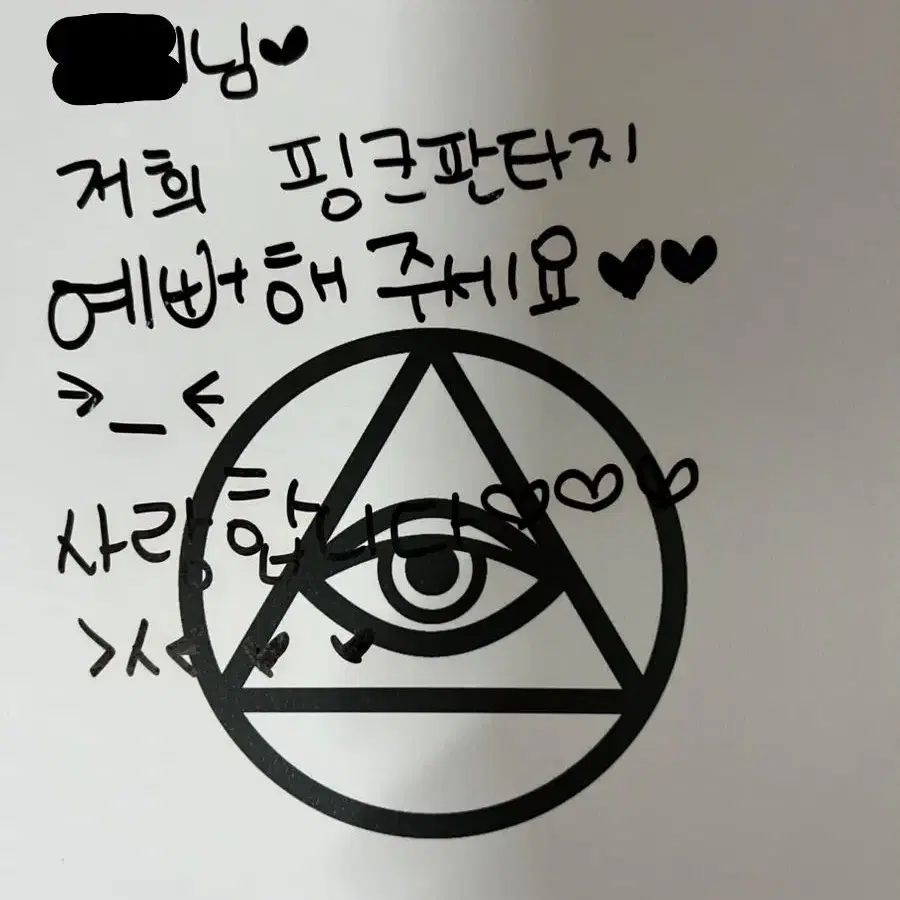 님♥
저희 핑크판타지
예뻐해 주세요♥♥
>_<
사랑합니다♡♡♡
>ㅅ< ♥ ♥